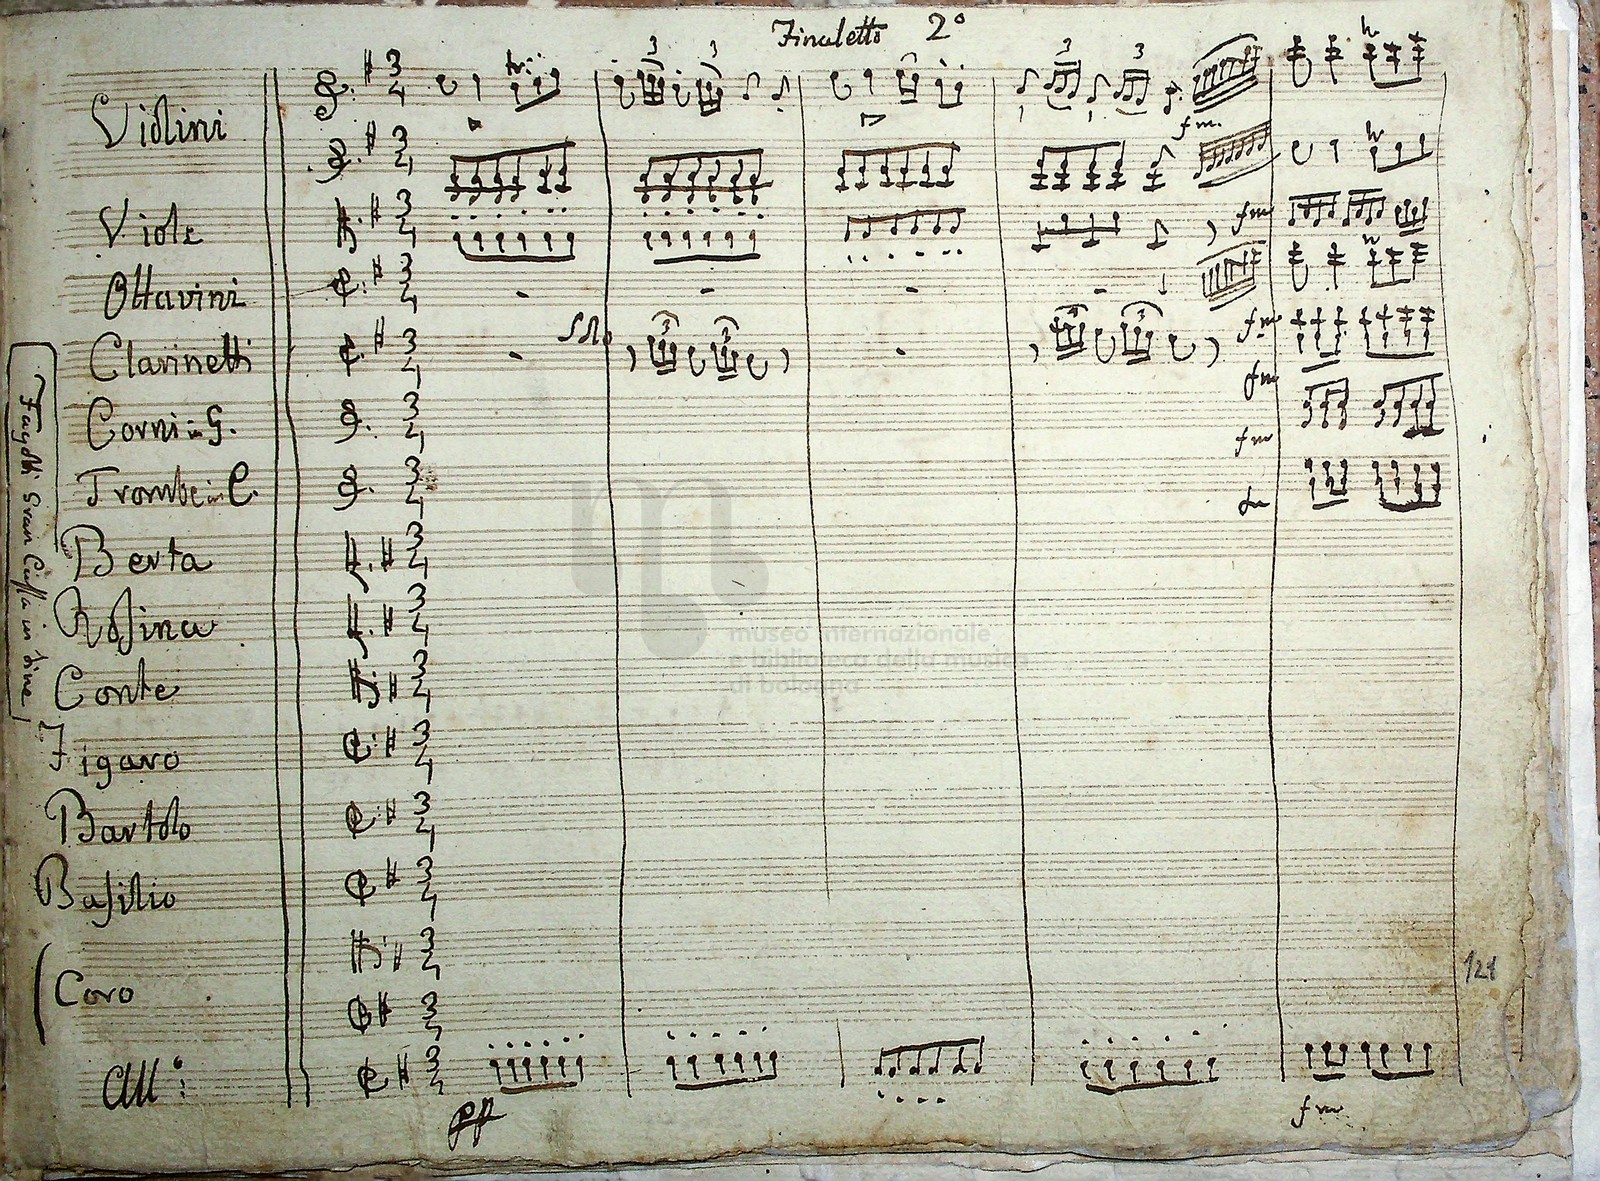 Finaletto 2º
Violini
Viole
Ottavini
Clarinetti
Corni in G.
Trombe in C.
Berta
Rosina
Conte
Figaro
Bartolo
Basilio
Coro
All:º
Fagotti Gran Cassa in fine
fm.
fm
fm
fm
fm
pp
fm
121
museo internazionale
e biblioteca della musica
di bologna